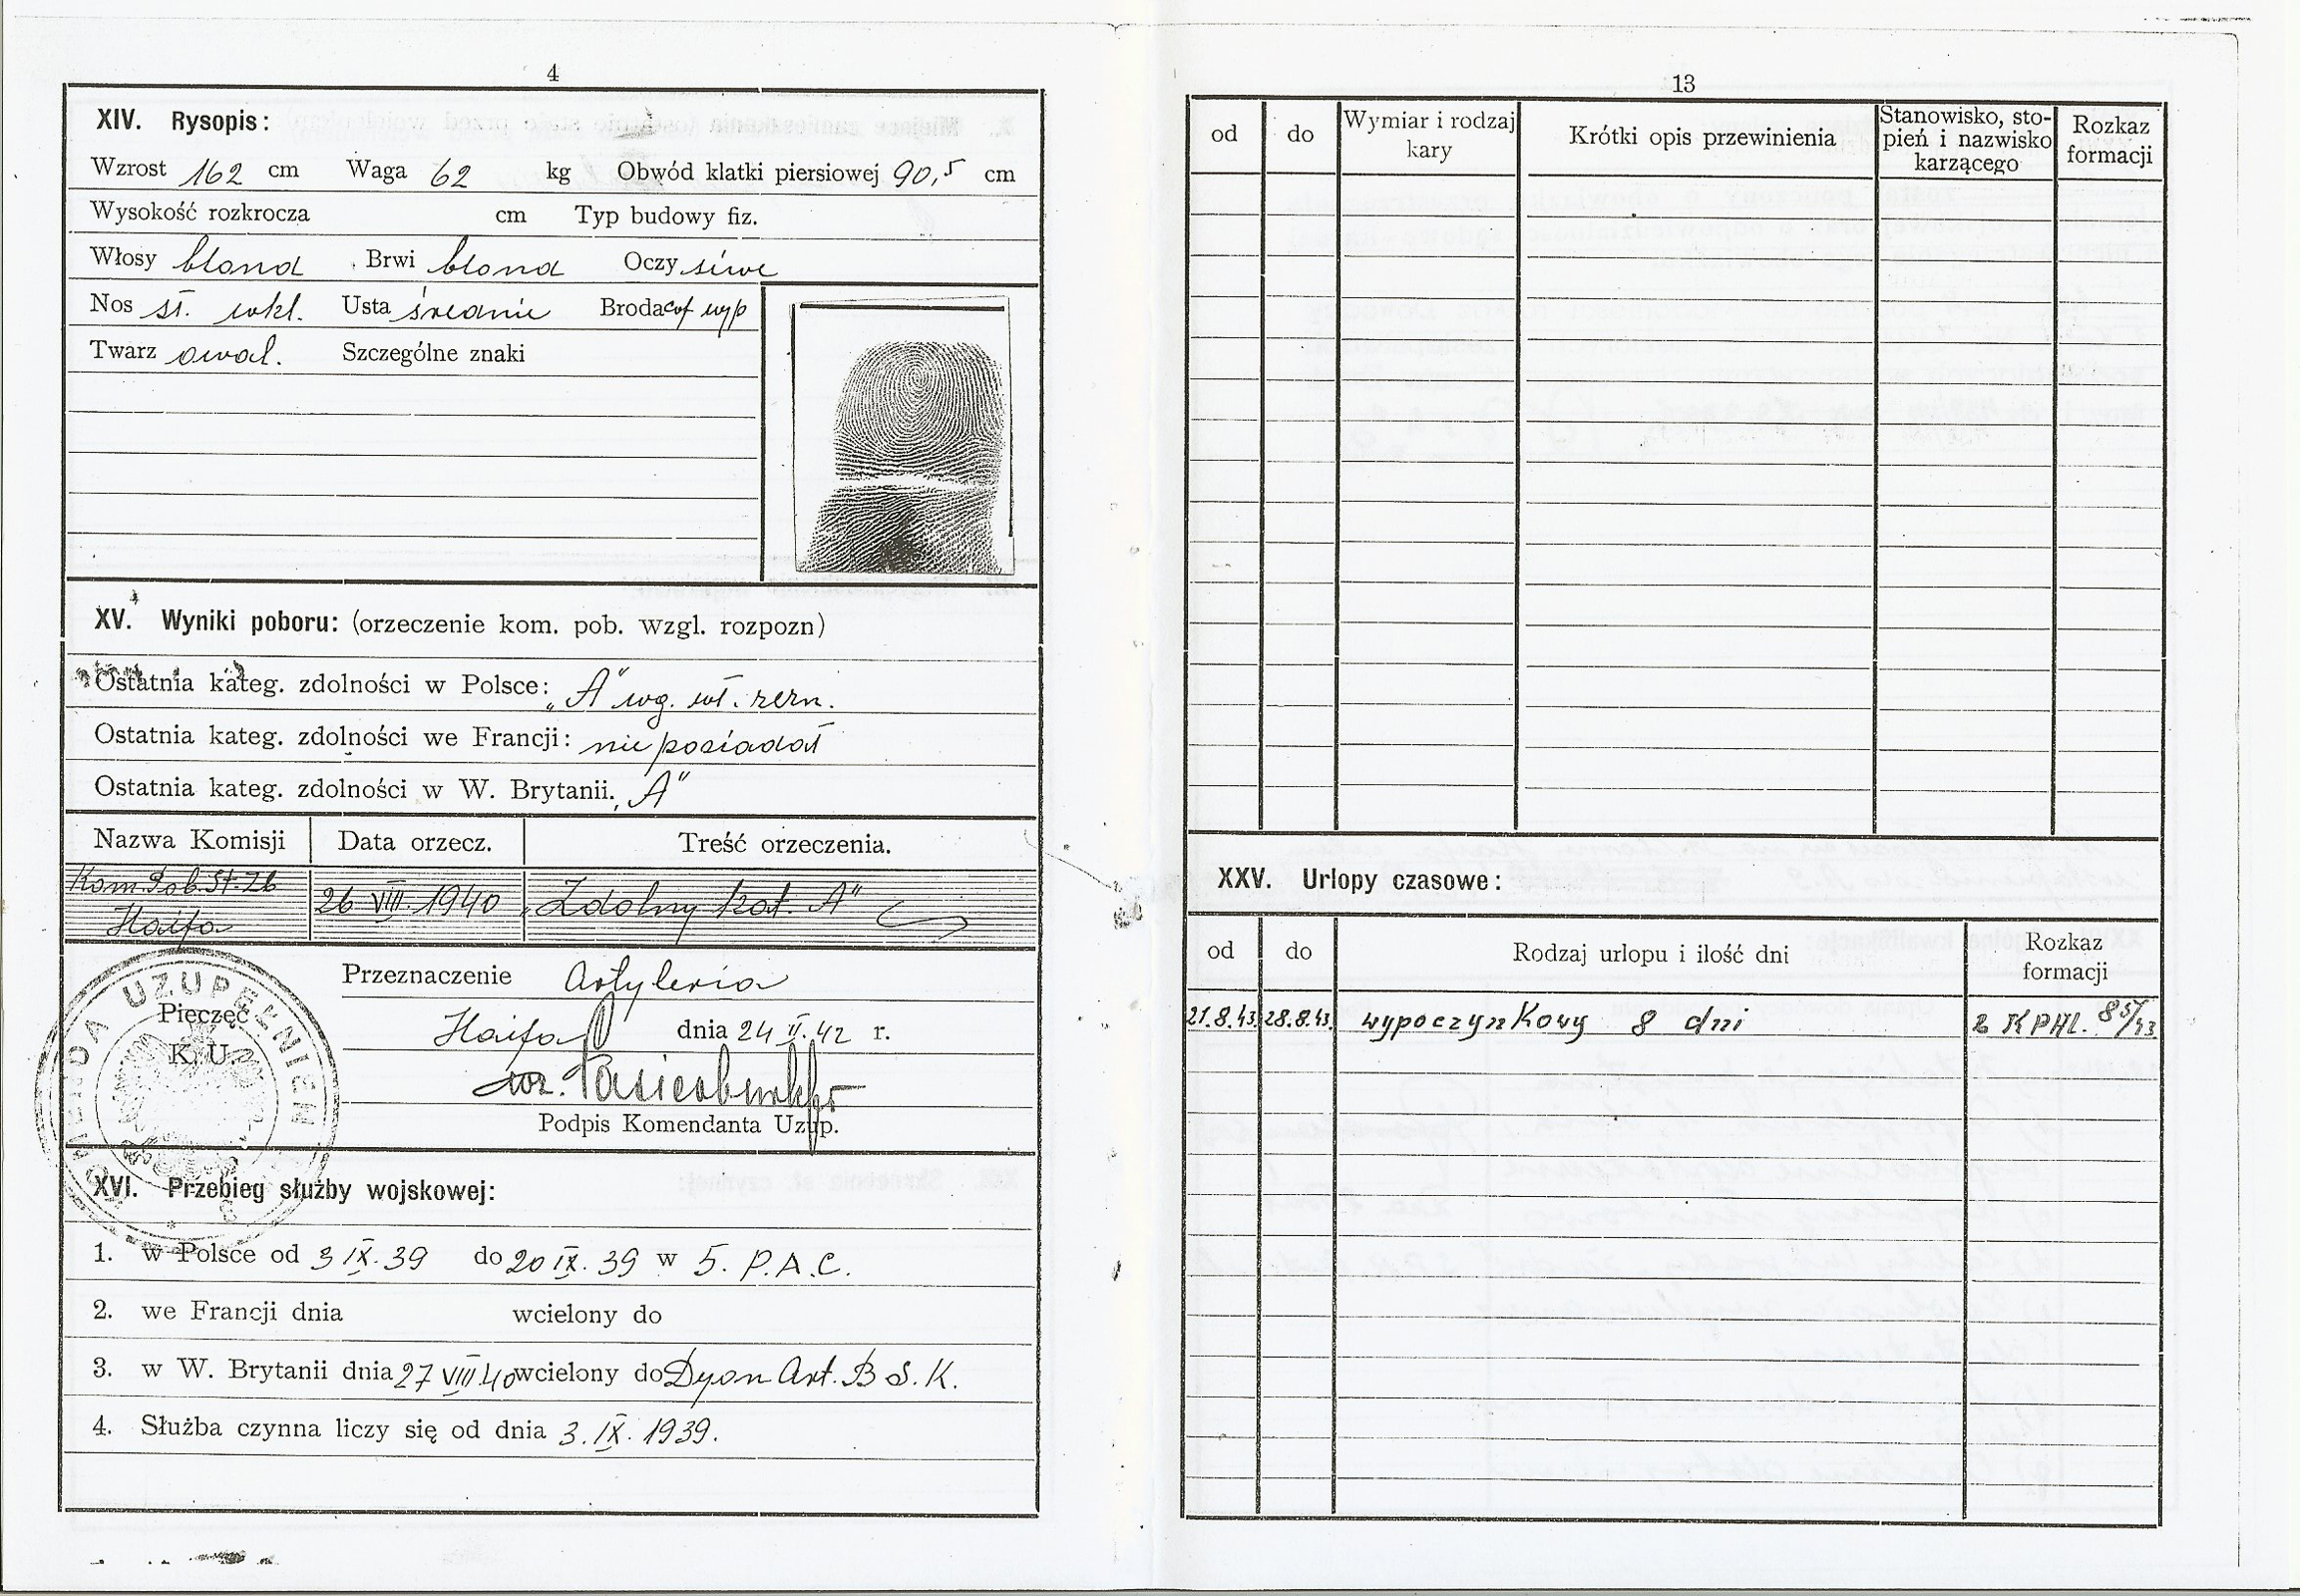 4
XIV. Rysopis:
Wzrost 162 cm Waga 62 kg Obwód klatki piersiowej 90,5 cm
Wysokość rozkrocza cm Typ budowy fiz.
Włosy blond Brwi blond Oczy siwe
Nos śr. wkl. Usta średnie Broda cof wyp
Twarz owal. Szczególne znaki
XV. Wyniki poboru: (orzeczenie kom. pob. wzgl. rozpozn)
Ostatnia kateg. zdolności w Polsce: „A" wg. wł. zezn.
Ostatnia kateg. zdolności we Francji: nie posiadał
Ostatnia kateg. zdolności w W. Brytanii. „A"
Nazwa Komisji Data orzecz. Treść orzeczenia.
Kom. Pob. St. Zb 26 VIII. 1940 „Zdolny kat. A"
Haifa
Przeznaczenie Artyleria
Pieczęć
K. U.
KOMENDA UZUPEŁNIEŃ
Haifa dnia 24 II. 42 r.
Podpis Komendanta Uzup.
XVI. Przebieg służby wojskowej:
1. w Polsce od 3 IX. 39 do 20 IX. 39 w 5. P.A.C.
2. we Francji dnia wcielony do
3. w W. Brytanii dnia 27 VIII 40 wcielony do Dyon Art. B S. K.
4. Służba czynna liczy się od dnia 3. IX. 1939.
13
od do Wymiar i rodzaj kary Krótki opis przewinienia Stanowisko, stopień i nazwisko karzącego Rozkaz formacji
XXV. Urlopy czasowe:
od do Rodzaj urlopu i ilość dni Rozkaz formacji
21.8.43. 28.8.43. wypoczynkowy 8 dni 2 KPHL. 85/43.